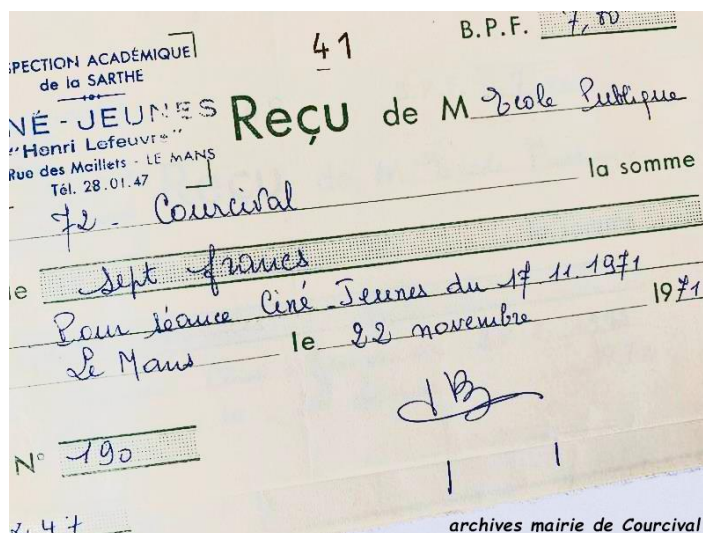 PECTION ACADÉMIQUE
de la SARTHE
NÉ-JEUNES
"Henri Lefeuvre"
Rue des Maillets - LE MANS
Tél. 28.01.47
41
B.P.F. 7,00
Reçu de M Ecole Publique
72 - Courcival la somme
e sept francs
Pour séance Ciné-Jeunes du 17 11.1971
Le Mans le 22 novembre 1971
N° 190
2,47
archives mairie de Courcival